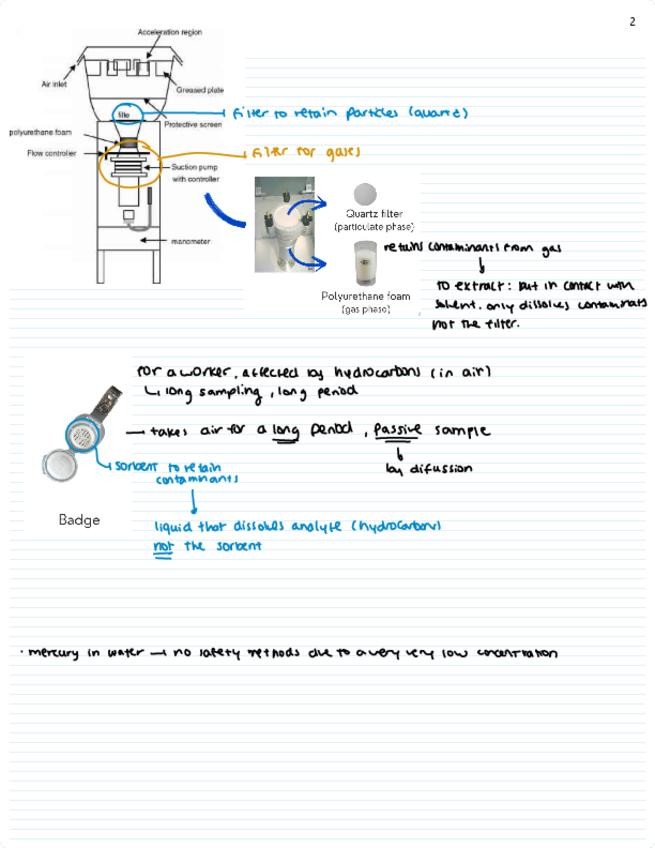 2
Acceleration region
Air inlet
Greased plate
filte
Filter to retain particles (quartz)
Protective screen
polyurethane foam
Flow controller
Filter for gases
Suction pump
with controller
manometer
Quartz filter
(particulate phase)
retains contaminants from gas
To extract: put in contact with
solvent. only dissolves contaminats
not the filter.
Polyurethane foam
(gas phase)
For a worker, affected by hydrocarbons (in air)
↳ long sampling, long period
— takes air for a long period, passive sample
by difussion
sorbent to retain
contaminants
Badge
liquid that dissolves analyte (hydrocarbon)
not the sorbent
· mercury in water → no safety methods due to a very very low concentration